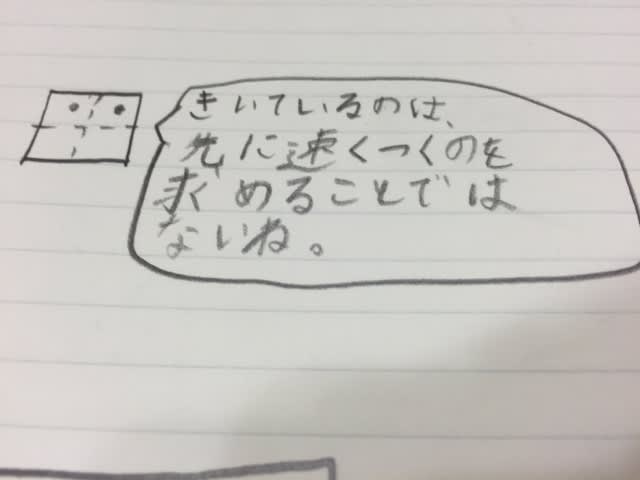 きいているのは、
先に速くつくのを
求めることでは
ないね。